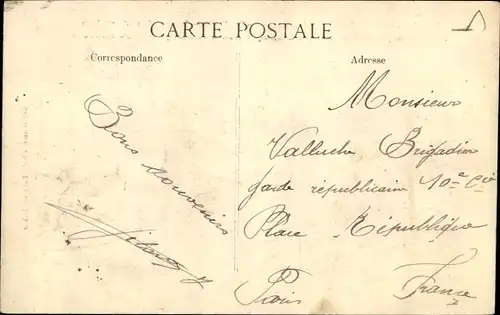 CARTE POSTALE
Correspondance
Adresse
Bons souvenirs
Monsieur
Brigadier
garde républicain 10e Cie
Place République
Paris France